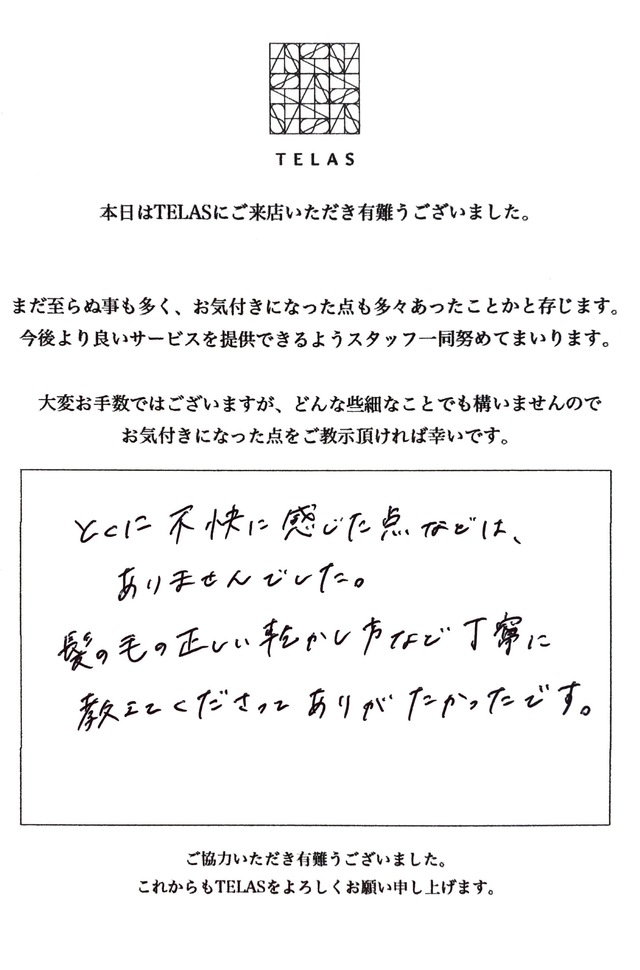 TELAS
本日はTELASにご来店いただき有難うございました。
まだ至らぬ事も多く、お気付きになった点も多々あったことかと存じます。
今後より良いサービスを提供できるようスタッフ一同努めてまいります。
大変お手数ではございますが、どんな些細なことでも構いませんので
お気付きになった点をご教示頂ければ幸いです。
とくに不快に感じた点などは、
ありませんでした。
髪の毛の正しい乾かし方など丁寧に
教えてくださってありがたかったです。
ご協力いただき有難うございました。
これからもTELASをよろしくお願い申し上げます。